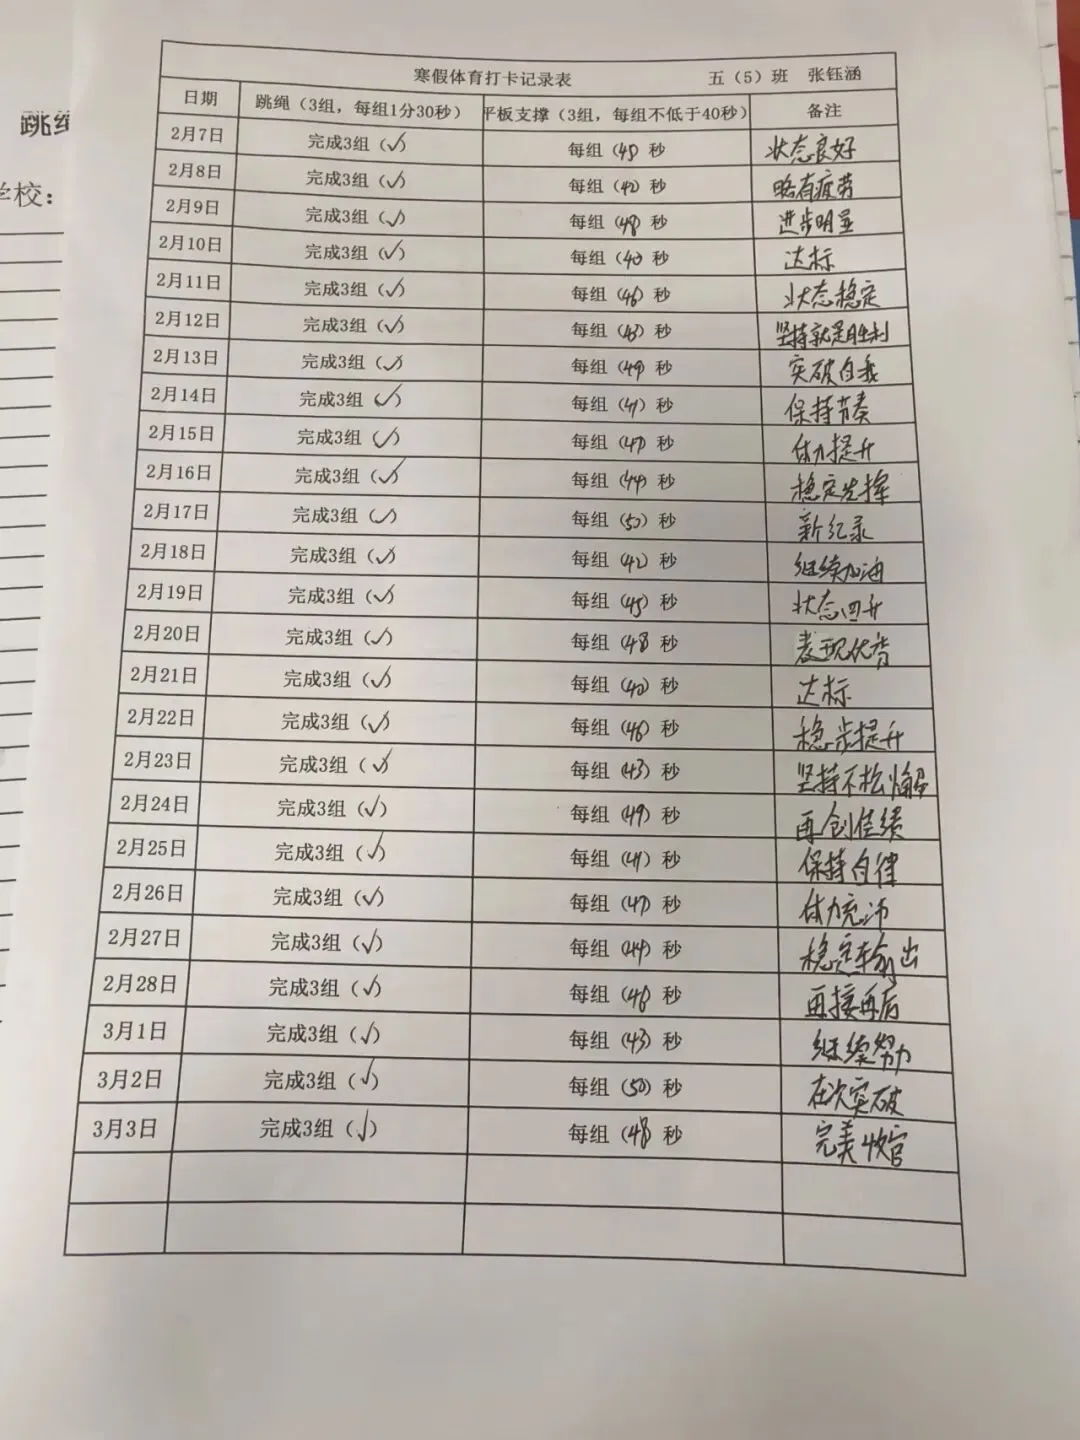 跳绳
学校：
寒假体育打卡记录表 五（5）班 张钰涵
日期 跳绳（3组，每组1分30秒） 平板支撑（3组，每组不低于40秒） 备注
2月7日 完成3组（✓） 每组（45）秒 状态良好
2月8日 完成3组（✓） 每组（42）秒 略有疲劳
2月9日 完成3组（✓） 每组（48）秒 进步明显
2月10日 完成3组（✓） 每组（40）秒 达标
2月11日 完成3组（✓） 每组（46）秒 状态稳定
2月12日 完成3组（✓） 每组（43）秒 坚持就是胜利
2月13日 完成3组（✓） 每组（49）秒 突破自我
2月14日 完成3组（✓） 每组（41）秒 保持节奏
2月15日 完成3组（✓） 每组（47）秒 体力提升
2月16日 完成3组（✓） 每组（44）秒 稳定发挥
2月17日 完成3组（✓） 每组（50）秒 新纪录
2月18日 完成3组（✓） 每组（42）秒 继续加油
2月19日 完成3组（✓） 每组（45）秒 状态回升
2月20日 完成3组（✓） 每组（48）秒 表现优秀
2月21日 完成3组（✓） 每组（40）秒 达标
2月22日 完成3组（✓） 每组（46）秒 稳步提升
2月23日 完成3组（✓） 每组（43）秒 坚持不松懈
2月24日 完成3组（✓） 每组（49）秒 再创佳绩
2月25日 完成3组（✓） 每组（41）秒 保持自律
2月26日 完成3组（✓） 每组（47）秒 体力充沛
2月27日 完成3组（✓） 每组（44）秒 稳定输出
2月28日 完成3组（✓） 每组（46）秒 再接再后
3月1日 完成3组（✓） 每组（43）秒 继续努力
3月2日 完成3组（✓） 每组（50）秒 在次突破
3月3日 完成3组（✓） 每组（48）秒 完美收官